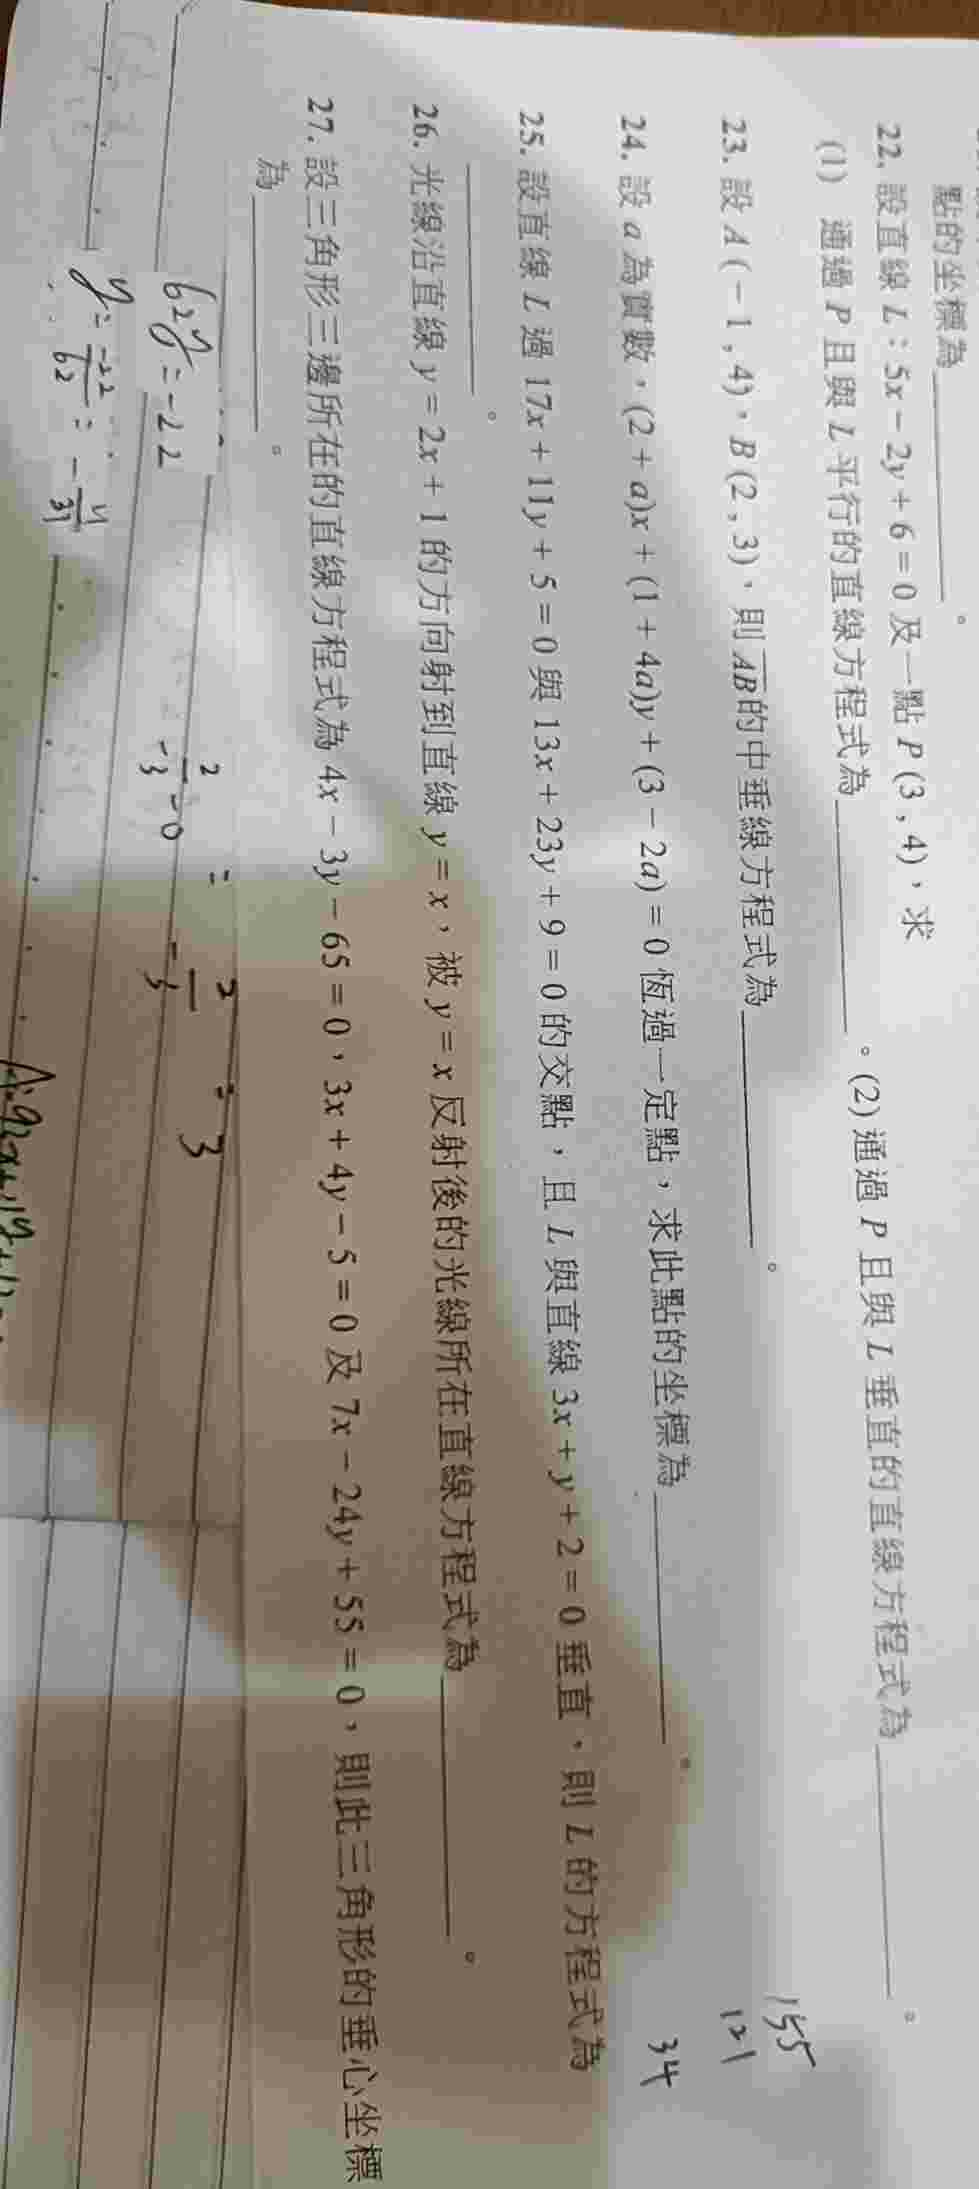 點的坐標為________。
22. 設直線 L：5x－2y＋6＝0 及一點 P(3,4)，求
(1) 通過 P 且與 L 平行的直線方程式為________。(2) 通過 P 且與 L 垂直的直線方程式為________。
23. 設 A(－1,4)、B(2,3)，則 AB 的中垂線方程式為________。
24. 設 a 為實數，(2＋a)x＋(1＋4a)y＋(3－2a)＝0 恆過一定點，求此點的坐標為________。
25. 設直線 L 過 17x＋11y＋5＝0 與 13x＋23y＋9＝0 的交點，且 L 與直線 3x＋y＋2＝0 垂直，則 L 的方程式為
________。
26. 光線沿直線 y＝2x＋1 的方向射到直線 y＝x，被 y＝x 反射後的光線所在直線方程式為________。
27. 設三角形三邊所在的直線方程式為 4x－3y－65＝0，3x＋4y－5＝0 及 7x－24y＋55＝0，則此三角形的垂心坐標
為________。
155
121
34
62y＝－22